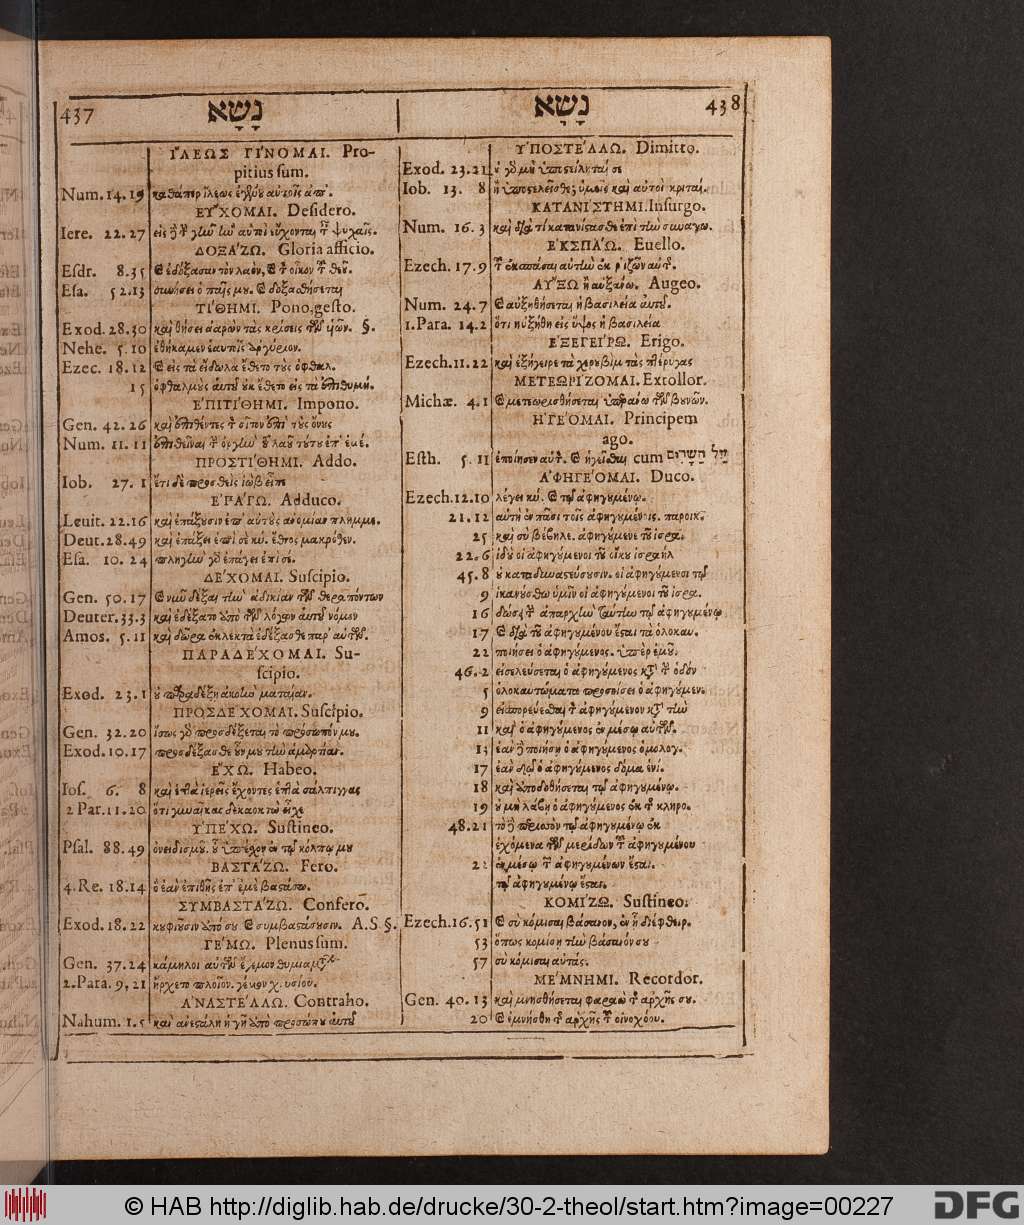 437 נָשָׂא
ἹΛΕΩΣ ΓΙΝΟΜΑΙ. Pro-
pitius ſum.
Num. 14. 19 καθάπερ ἵλεως ἐγένου αὐτοῖς ἀπ'.
ΕΥΧΟΜΑΙ. Deſidero.
Iere. 22. 27 εἰς ἣν εὔχονται ψυχαῖς.
ΔΟΞΑΖΩ. Gloria afficio.
Eſdr. 8. 35 ἐδόξασαν τὸν λαὸν, οἶκον θεοῦ.
Eſa. 52. 13 συνήσει ὁ παῖς μου. δοξασθήσεται
ΤΙΘΗΜΙ. Pono, geſto.
Exod. 28. 30 καὶ θήσει ἀαρὼν τὰς κρίσεις τῶν υἱῶν. §.
Nehe. 5. 10 ἐθήκαμεν ἑαυτοῖς ἀργύριον.
Ezec. 18. 12 εἰς τὰ εἴδωλα ἔθετο τοὺς ὀφθαλ.
15 ὀφθαλμοὺς αὐτοῦ οὐκ ἔθετο εἰς τὰ ἐνθυμή.
ΕΠΙΤΙΘΗΜΙ. Impono.
Gen. 42. 26 καὶ ἐπιθέντες τὸν σῖτον ἐπὶ τοὺς ὄνους
Num. 11. 11 ἐπιθεῖναι τὴν ὀργὴν τοῦ λαοῦ τούτου ἐπ' ἐμέ.
ΠΡΟΣΤΙΘΗΜΙ. Addo.
Iob. 27. 1 ἔτι δὲ προσθεὶς ἰὼβ εἶπε
ΕΠΑΓΩ. Adduco.
Leuit. 22. 16 καὶ ἐπάξουσιν ἐπ' αὐτοὺς ἀνομίαν πλημμε.
Deut. 28. 49 καὶ ἐπάξει ἐπὶ σὲ κύ. ἔθνος μακρόθεν.
Eſa. 10. 24 πληγὴν γὰρ ἐπάγει ἐπί σε.
ΔΕΧΟΜΑΙ. Suſcipio.
Gen. 50. 17 νῦν δέξαι τὴν ἀδικίαν τῶν θεραπόντων
Deuter. 33. 3 καὶ ἐδέξατο ἀπὸ τῶν λόγων αὐτοῦ νόμον
Amos. 5. 11 καὶ δῶρα ἐκλεκτὰ ἐδέξασθε παρ' αὐτῶν.
ΠΑΡΑΔΕΧΟΜΑΙ. Su-
ſcipio.
Exod. 23. 1 οὐ παραδέξῃ ἀκοὴν ματαίαν.
ΠΡΟΣΔΕΧΟΜΑΙ. Suſcipio.
Gen. 32. 20 ἴσως γὰρ προσδέξεται τὸ πρόσωπόν μου.
Exod. 10. 17 προσδέξασθε οὖν μου τὴν ἁμαρτίαν.
ΕΧΩ. Habeo.
Ioſ. 6. 8 καὶ ἑπτὰ ἱερεῖς ἔχοντες ἑπτὰ σάλπιγγας
2 Par. 11. 20 ὅτι γυναῖκας δεκαοκτὼ εἶχε
ΥΠΕΧΩ. Suſtineo.
Pſal. 88. 49 ὀνειδισμοῦ. οὗ ὑπέσχον ἐν τῷ κόλπῳ μου
ΒΑΣΤΑΖΩ. Fero.
4. Re. 18. 14 ὃ ἐὰν ἐπιθῇς ἐπ' ἐμὲ βαστάσω.
ΣΥΜΒΑΣΤΑΖΩ. Confero.
Exod. 18. 22 κουφιοῦσιν ἀπό σου συμβαστάσουσιν. A. S §.
ΓΕΜΩ. Plenus ſum.
Gen. 37. 24 κάμηλοι αὐτῶν ἔγεμον θυμιαμάτων
2. Para. 9, 21 ἤρχετο πλοῖον. γέμον χρυσίου.
ΑΝΑΣΤΕΛΛΩ. Contraho.
Nahum. 1. 5 καὶ ἀνεστάλη ἡ γῆ ἀπὸ προσώπου αὐτοῦ
נָשָׂא 438
ΥΠΟΣΤΕΛΛΩ. Dimitto.
Exod. 23. 21 οὐ γὰρ μὴ ὑποστείληταί σε
Iob. 13. 8 ἢ ὑποστελεῖσθε; ὑμεῖς καὶ αὐτοὶ κριταί.
ΚΑΤΑΝΙΣΤΗΜΙ. Inſurgo.
Num. 16. 3 καὶ διὰ τί κατανίστασθε ἐπὶ τὴν συναγω.
ΕΚΣΠΑΩ. Euello.
Ezech. 17. 9 τοῦ ἐκσπάσαι αὐτὴν ἐκ ῥιζῶν αὐτῆς.
ΑΥΞΩ ἢ αὐξάνω. Augeo.
Num. 24. 7 αὐξηθήσεται ἡ βασιλεία αὐτοῦ.
1. Para. 14. 2 ὅτι ηὐξήθη εἰς ὕψος ἡ βασιλεία
ΕΞΕΓΕΙΡΩ. Erigo.
Ezech. 11. 22 καὶ ἐξήγειρε τὰ χερουβὶμ τὰς πτέρυγας
ΜΕΤΕΩΡΙΖΟΜΑΙ. Extollor.
Michæ. 4. 1 μετεωρισθήσεται ὑπεράνω τῶν βουνῶν.
ΗΓΕΟΜΑΙ. Principem
ago.
Eſth. 5. 11 ἐποίησεν αὐτὸν. ἡγεῖσθαι cum עַל הַשָּׂרִים
ΑΦΗΓΕΟΜΑΙ. Duco.
Ezech. 12. 10 λέγει κύ. τῷ ἀφηγουμένῳ.
21. 12 αὐτὴ ἐν πᾶσι τοῖς ἀφηγουμένοις. παροικ.
25 καὶ σὺ βέβηλε. ἀφηγούμενε τοῦ ἰσρα.
22. 6 ἰδοὺ οἱ ἀφηγούμενοι τοῦ οἴκου ἰσραὴλ
45. 8 οὐ καταδυναστεύσουσιν. οἱ ἀφηγούμενοι τῷ
9 ἱκανούσθω ὑμῖν οἱ ἀφηγούμενοι τοῦ ἰσρα.
16 δώσει τὴν ἀπαρχὴν ταύτην τῷ ἀφηγουμένῳ
17 διὰ τοῦ ἀφηγουμένου ἔσται τὰ ὁλοκαυ.
22 ποιήσει ὁ ἀφηγούμενος. ὑπὲρ ἑαυτοῦ.
46. 2 εἰσελεύσεται ὁ ἀφηγούμενος κατὰ τὴν ὁδὸν
5 ὁλοκαυτώματα προσοίσει ὁ ἀφηγούμεν.
9 εἰσπορεύεσθαι τὸν ἀφηγούμενον κατὰ τὴν
11 καὶ ὁ ἀφηγούμενος ἐν μέσῳ αὐτῶν.
13 ἐὰν ποιήσῃ ὁ ἀφηγούμενος ὁμολογ.
17 ἐὰν δῷ ὁ ἀφηγούμενος δόμα ἑνί.
18 καὶ ἀποδοθήσεται τῷ ἀφηγουμένῳ.
19 οὐ μὴ λάβῃ ὁ ἀφηγούμενος ἐκ τῆς κληρο.
48. 21 τὸ περισσὸν τῷ ἀφηγουμένῳ ἐκ
ἐχόμενα τῶν μερίδων τοῦ ἀφηγουμένου
22 ἐν μέσῳ τῶν ἀφηγουμένων ἔσται.
τῷ ἀφηγουμένῳ ἔσται.
ΚΟΜΙΖΩ. Suſtineo.
Ezech. 16. 51 σὺ κόμισαι βάσανον, ἐν ᾗ διέφθειρ.
53 ὅπως κομίσῃ τὴν βάσανόν σου
57 σὺ κόμισαι αὐτάς.
ΜΕΜΝΗΜΙ. Recordor.
Gen. 40. 13 καὶ μνησθήσεται φαραὼ τῆς ἀρχῆς σου.
20 ἐμνήσθη τῆς ἀρχῆς τοῦ οἰνοχόου.
© HAB http://diglib.hab.de/drucke/30-2-theol/start.htm?image=00227
DFG